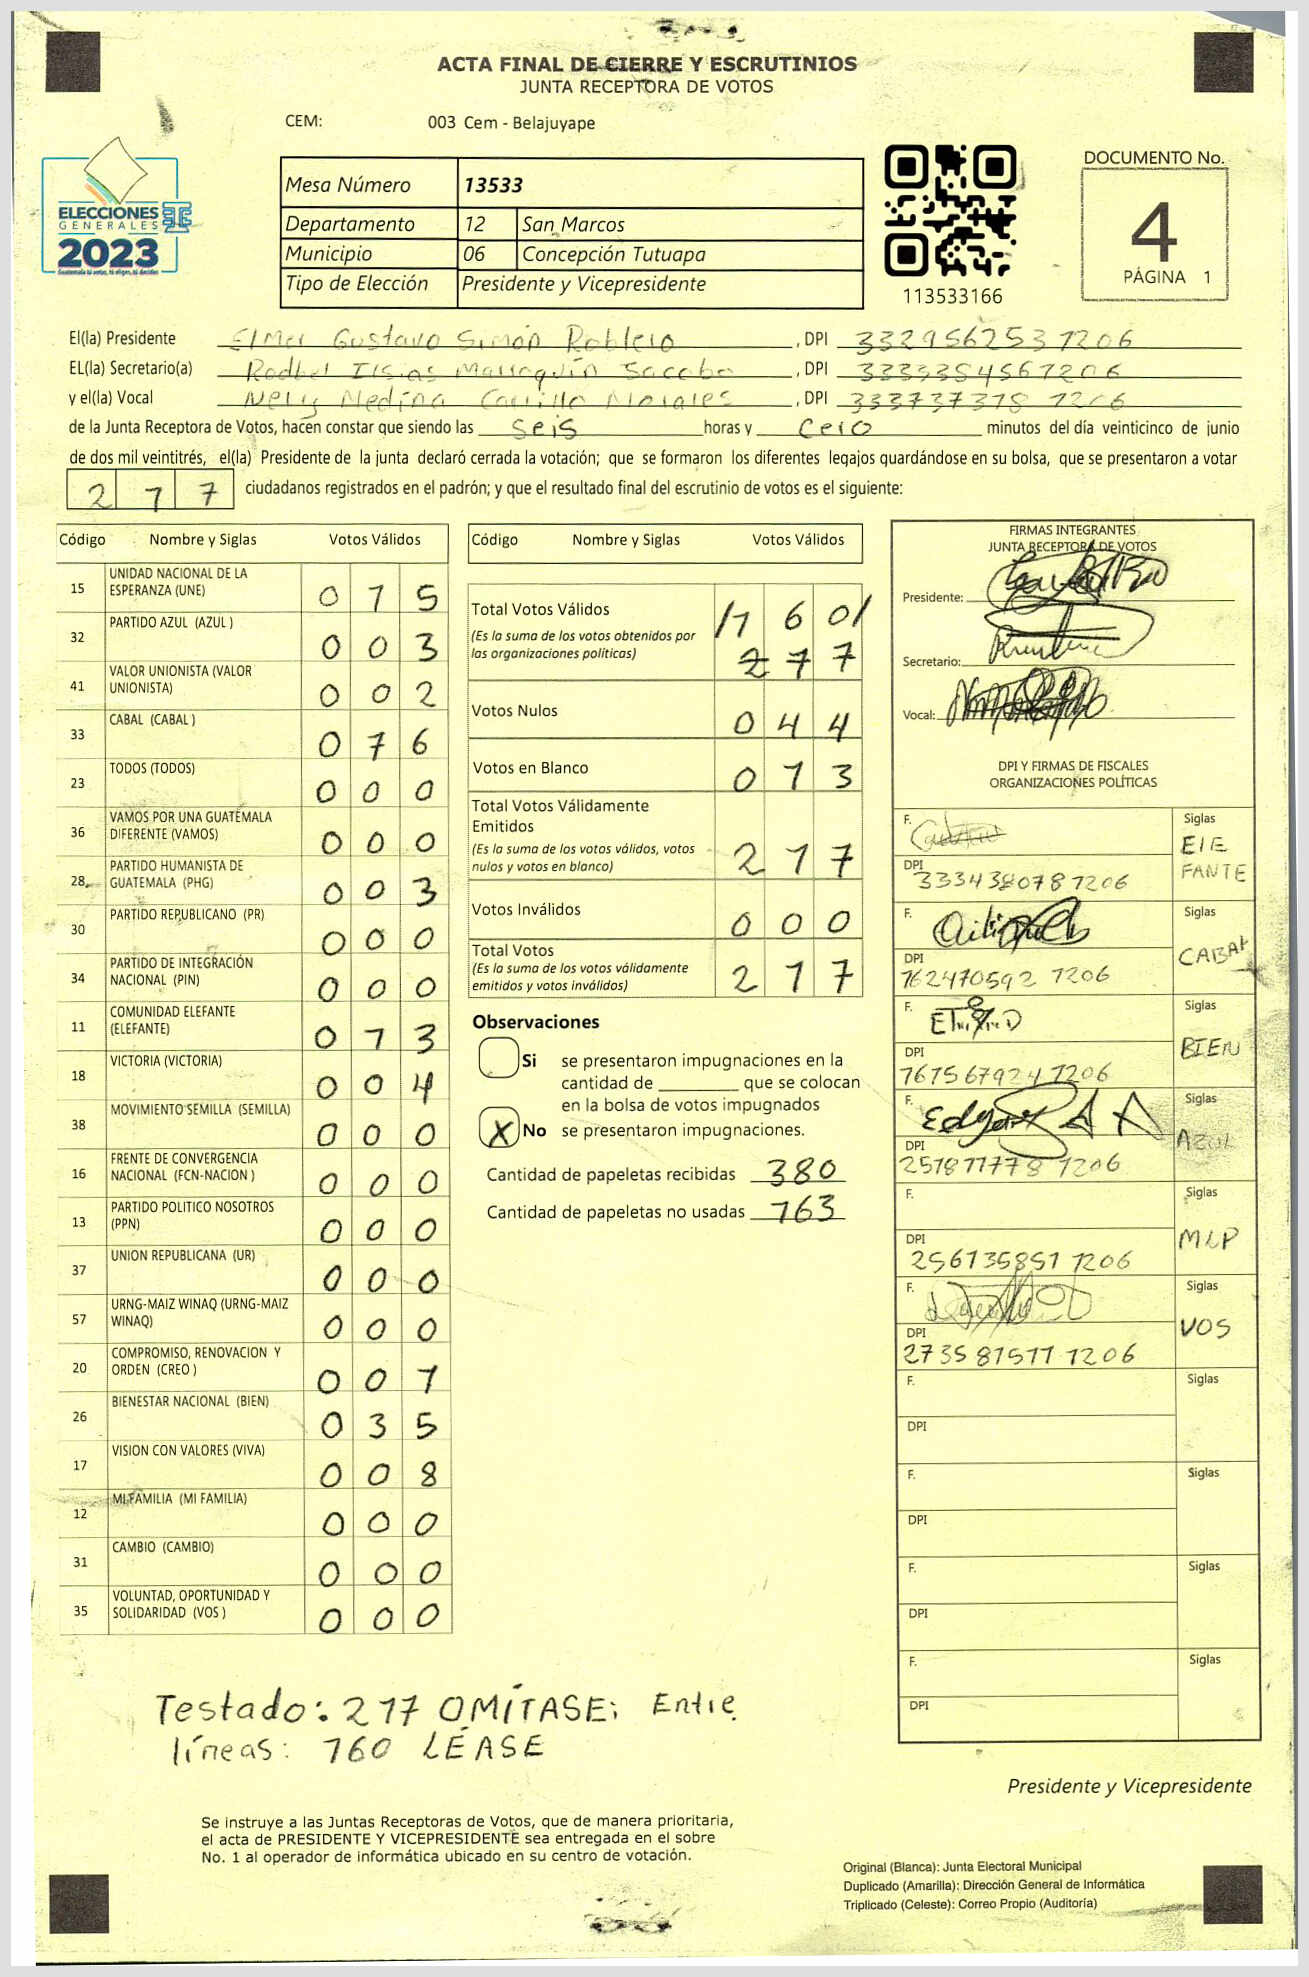 ACTA FINAL DE CIERRE Y ESCRUTINIOS
JUNTA RECEPTORA DE VOTOS
CEM: 003 Cem - Belajuyape
ELECCIONES
GENERALES
2023
Guatemala tú votas, tú eliges, tú decides
Mesa Número 13533
Departamento 12 San Marcos
Municipio 06 Concepción Tutuapa
Tipo de Elección Presidente y Vicepresidente
113533166
DOCUMENTO No.
4
PÁGINA 1
El(la) Presidente Elmer Gustavo Simón Roblero, DPI 332956253 1206
EL(la) Secretario(a) Marroquín Sacaba, DPI
y el(la) Vocal Nely Medina Carrillo Morales, DPI
de la Junta Receptora de Votos, hacen constar que siendo las seis horas y cero minutos del día veinticinco de junio
de dos mil veintitrés, el(la) Presidente de la junta declaró cerrada la votación; que se formaron los diferentes legajos quardándose en su bolsa, que se presentaron a votar
217 ciudadanos registrados en el padrón; y que el resultado final del escrutinio de votos es el siguiente:
Código Nombre y Siglas Votos Válidos
15 UNIDAD NACIONAL DE LA ESPERANZA (UNE) 0 1 5
32 PARTIDO AZUL (AZUL ) 0 0 3
41 VALOR UNIONISTA (VALOR UNIONISTA) 0 0 2
33 CABAL (CABAL ) 0 7 6
23 TODOS (TODOS) 0 0 0
36 VAMOS POR UNA GUATEMALA DIFERENTE (VAMOS) 0 0 0
28 PARTIDO HUMANISTA DE GUATEMALA (PHG) 0 0 3
30 PARTIDO REPUBLICANO (PR) 0 0 0
34 PARTIDO DE INTEGRACIÓN NACIONAL (PIN) 0 0 0
11 COMUNIDAD ELEFANTE (ELEFANTE) 0 1 3
18 VICTORIA (VICTORIA) 0 0 4
38 MOVIMIENTO SEMILLA (SEMILLA) 0 0 0
16 FRENTE DE CONVERGENCIA NACIONAL (FCN-NACION ) 0 0 0
13 PARTIDO POLITICO NOSOTROS (PPN) 0 0 0
37 UNION REPUBLICANA (UR) 0 0 0
57 URNG-MAIZ WINAQ (URNG-MAIZ WINAQ) 0 0 0
20 COMPROMISO, RENOVACION Y ORDEN (CREO ) 0 0 1
26 BIENESTAR NACIONAL (BIEN) 0 3 5
17 VISION CON VALORES (VIVA) 0 0 8
12 MI FAMILIA (MI FAMILIA) 0 0 0
31 CAMBIO (CAMBIO) 0 0 0
35 VOLUNTAD, OPORTUNIDAD Y SOLIDARIDAD (VOS ) 0 0 0
Código Nombre y Siglas Votos Válidos
Total Votos Válidos /1 6 0/
(Es la suma de los votos obtenidos por las organizaciones políticas) 2 1 7
Votos Nulos 0 4 4
Votos en Blanco 0 1 3
Total Votos Válidamente Emitidos
(Es la suma de los votos válidos, votos nulos y votos en blanco) 2 1 7
Votos Inválidos 0 0 0
Total Votos
(Es la suma de los votos válidamente emitidos y votos inválidos) 2 1 7
Observaciones
Si se presentaron impugnaciones en la
cantidad de ________ que se colocan
en la bolsa de votos impugnados
X No se presentaron impugnaciones.
Cantidad de papeletas recibidas 380
Cantidad de papeletas no usadas 163
FIRMAS INTEGRANTES
JUNTA RECEPTORA DE VOTOS
Presidente:
Secretario:
Vocal:
DPI Y FIRMAS DE FISCALES
ORGANIZACIONES POLÍTICAS
F. Siglas ElE FANTE
DPI 333438078 1206
F. Siglas CABAL
DPI 162470592 1206
F. Siglas BIEN
DPI 1206
F. Siglas AZUL
DPI 1206
F. Siglas MLP
DPI 256135851 1206
F. Siglas VOS
DPI 1206
F. Siglas
DPI
F. Siglas
DPI
F. Siglas
DPI
F. Siglas
DPI
Testado: 217 OMÍTASE; Entre
líneas: 160 LÉASE
Presidente y Vicepresidente
Se instruye a las Juntas Receptoras de Votos, que de manera prioritaria,
el acta de PRESIDENTE Y VICEPRESIDENTE sea entregada en el sobre
No. 1 al operador de informática ubicado en su centro de votación.
Original (Blanca): Junta Electoral Municipal
Duplicado (Amarilla): Dirección General de Informática
Triplicado (Celeste): Correo Propio (Auditoría)